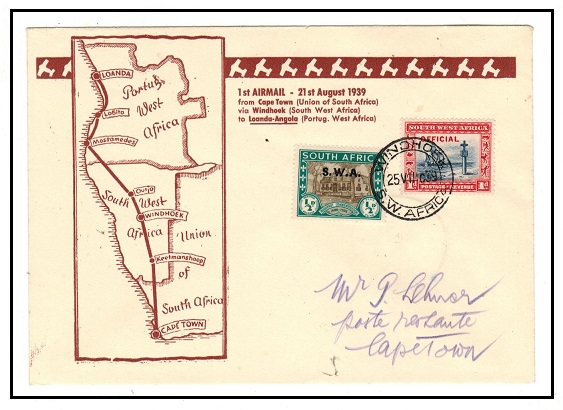 LOANDA
Portug.
West
Africa
Lobito
Mossamedes
Outjo
South West
WINDHOEK
Africa Union
Keetmanshoop
of
South Africa
CAPE TOWN
1st AIRMAIL - 21st August 1939
from Cape Town (Union of South Africa)
via Windhoek (South West Africa)
to Loanda-Angola (Portug. West Africa)
SOUTH AFRICA
S.W.A.
½d ½d
SOUTH WEST AFRICA
OFFICIAL
1d POSTAGE REVENUE 1d
WINDHOEK
S.W. AFRICA
Mr P. Lehner
poste restante
Capetown